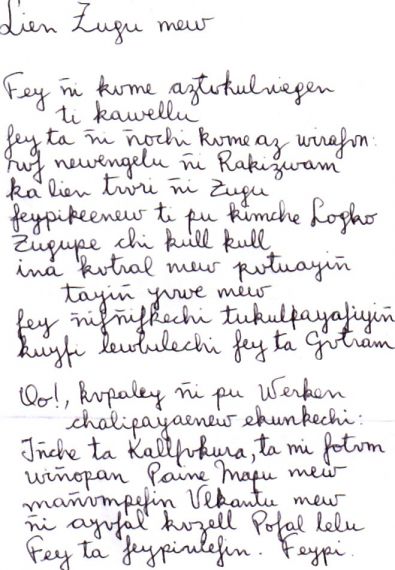 Lien Zugu mew
Fey ñi kvme aztvkulniegen
ti kawellu
fey ta ñi ñochi kvme az wirafvn:
rvf newengelu ñi Rakizwam
ka lien trvri ñi Zugu
feypikeenew ti pu kimche Logko
Zugupe chi kull kull
ina kvtral mew pvtuayiñ
tayiñ yvwe mew
fey ñifñifkechi tukulpayafiyiñ
kuyfi lewlulechi fey ta Gvtram
Oo!, kvpaley ñi pu Werken
chalipayaenew ekunkechi:
Iñche ta Kallfvkura, ta mi fotvm
wiñopan Paine Mapu mew
mañvmpefin Vlkantu mew
ñi ayvfal kvzell Pofal lelu
Fey ta feypirulefin. Feypi.